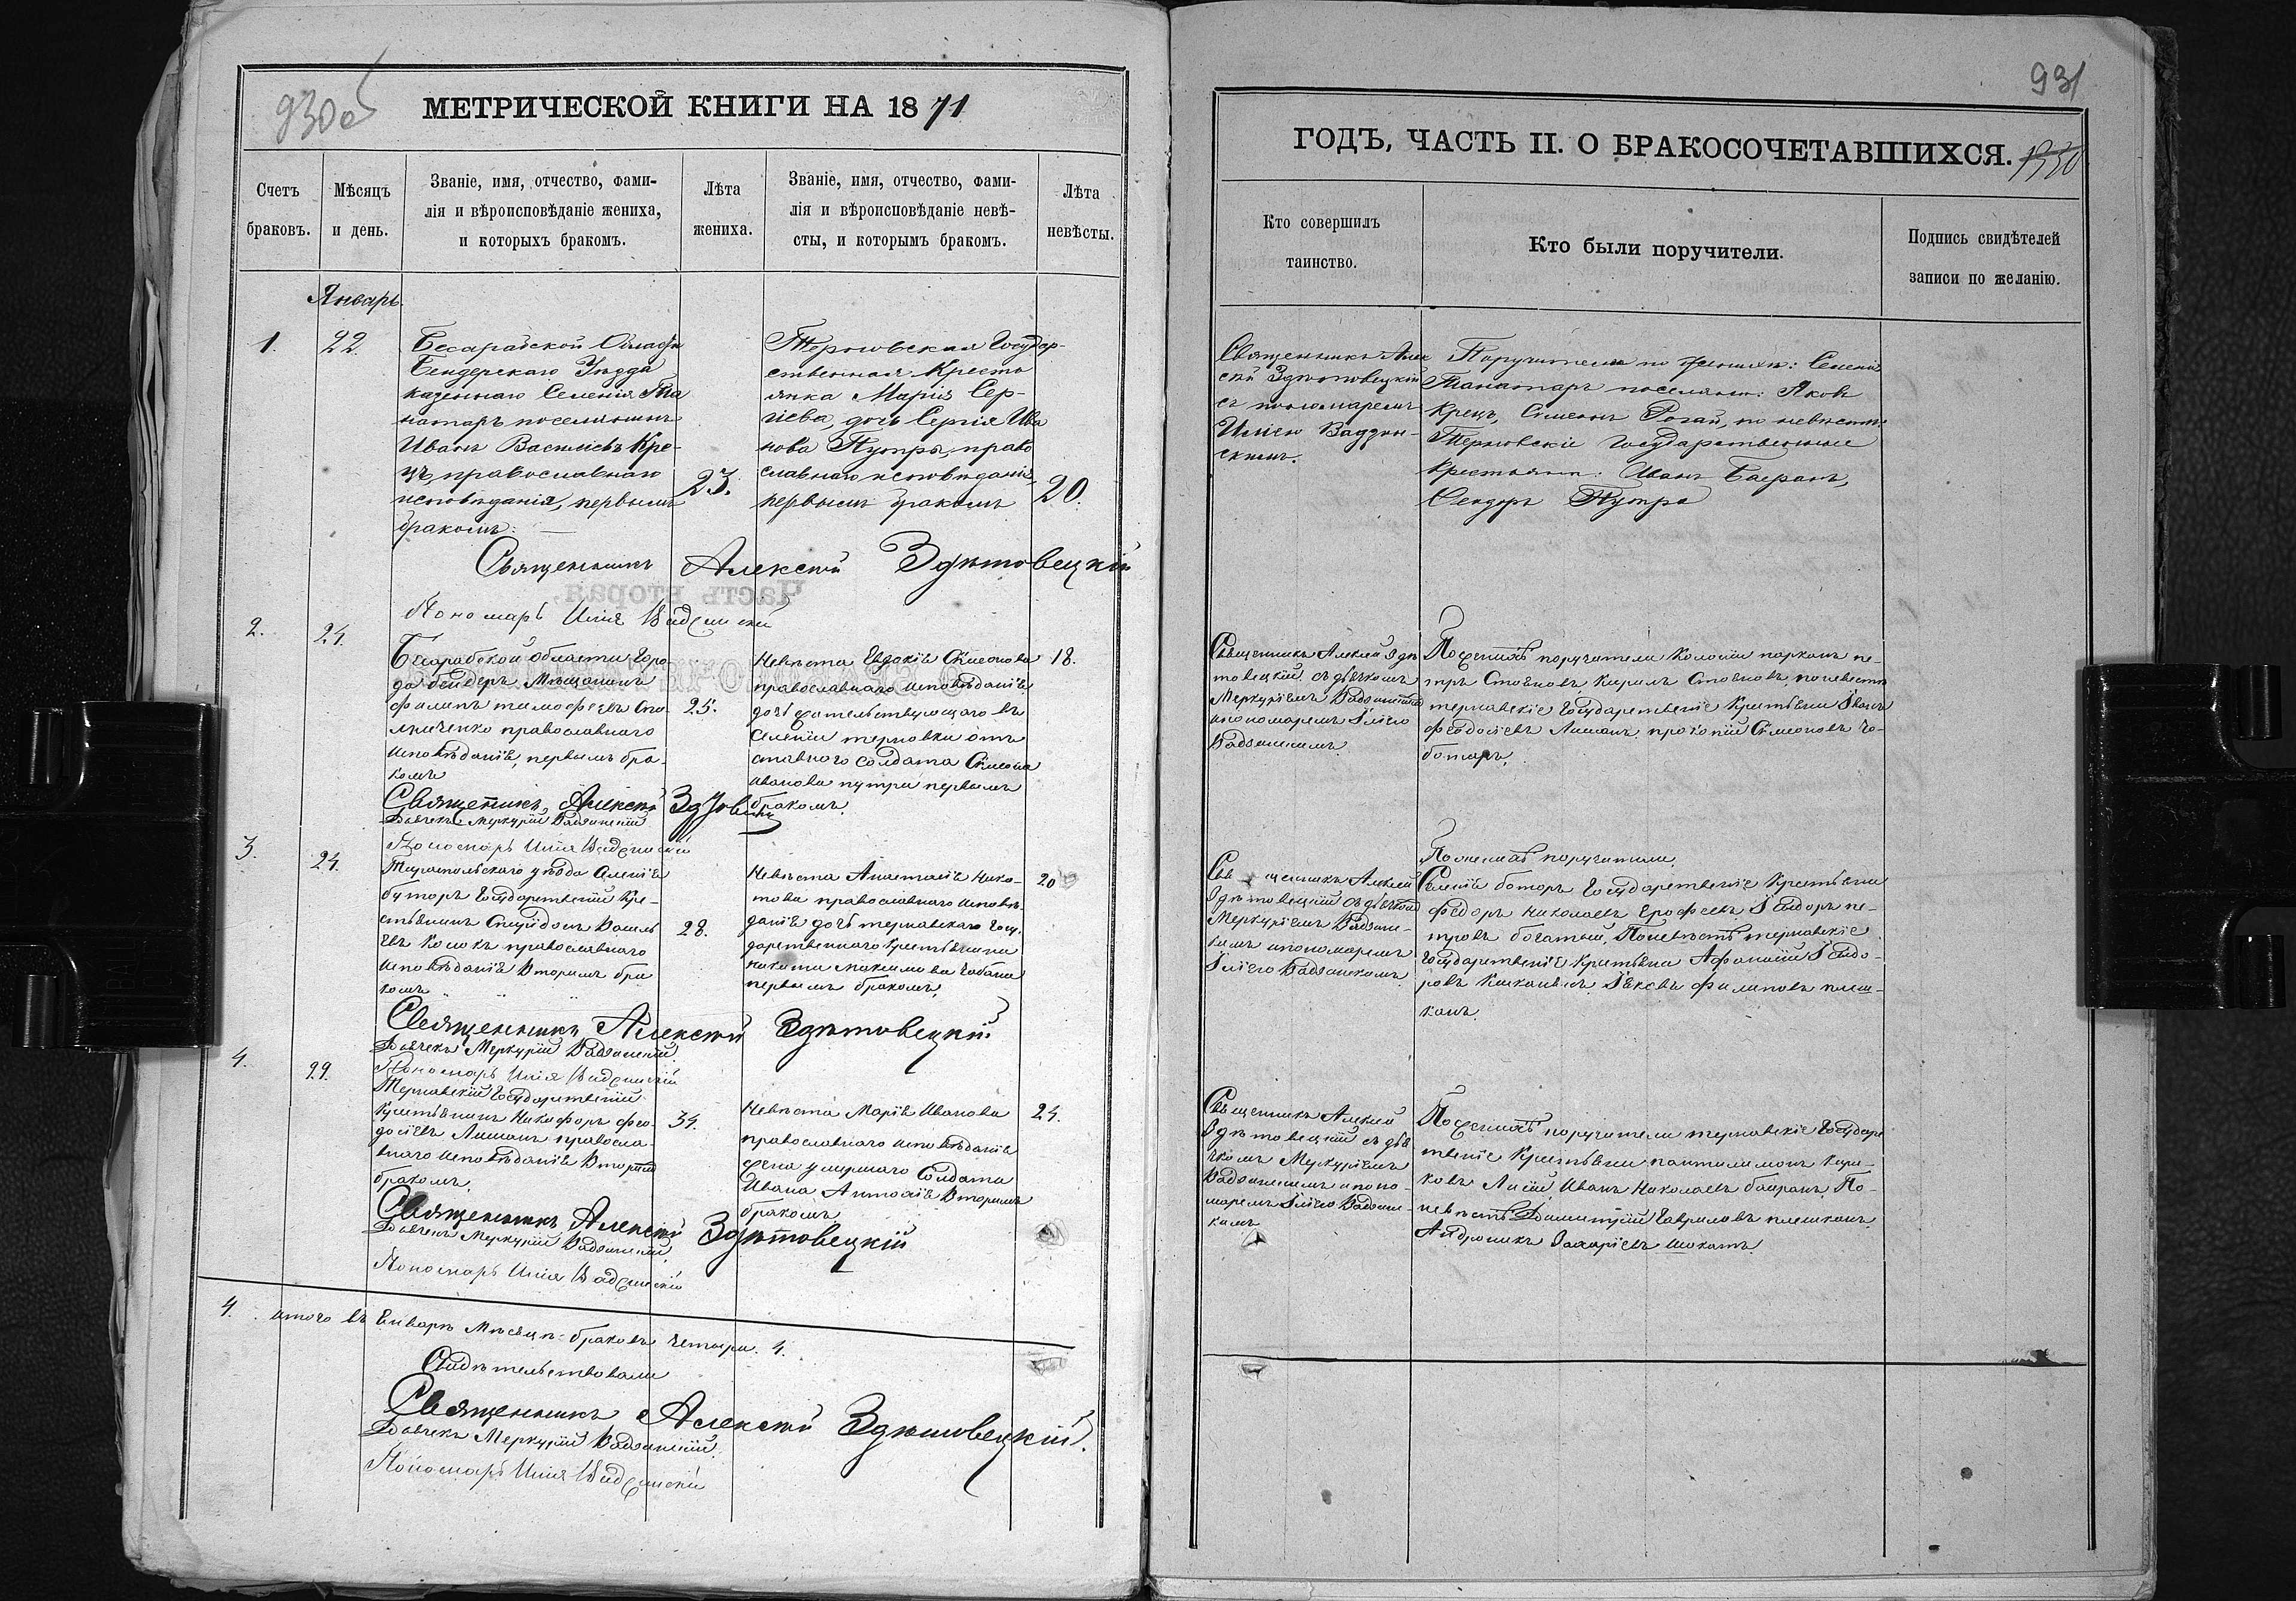 930об
МЕТРИЧЕСКОЙ КНИГИ НА 1871
Счетъ
браковъ.
Мѣсяцъ
и день.
Званіе, имя, отчество, фами-
лія и вѣроисповѣданіе жениха,
и которыхъ бракомъ.
Лѣта
жениха.
Званіе, имя, отчество, фами-
лія и вѣроисповѣданіе невѣ-
сты, и которымъ бракомъ.
Лѣта
невѣсты.
Январь.
1.
22.
Бесарабской Области
Бендерскаго Уѣзда
казеннаго Селенія Та
натаръ поселянинъ
Иванъ Васильевъ Кре-
цъ, православнаго
исповѣданія, первымъ
бракомъ.
23.
Терновская Государ-
ственная Кресть
янка Марія Сер-
гіева, дочь Сергія Ива
нова Путря, право
славнаго исповѣданія,
первымъ бракомъ
20.
Священникъ Алексѣй Здѣтовецкій
Пономарь Илія
2.
24.
Бесарабской области горо
да бендеръ Мѣщанинъ
филипъ тимофеевъ
православнаго
исповѣданіе, первымъ бра-
комъ
25.
Невѣста Евдокіе Симеонова
православнаго исповѣданіе
дочь жительствующаго въ
Селеніи терновки отъ
ставного солдата Симеона
иванова путри первымъ
бракомъ.
18.
Священникъ Алексѣй
Дьячекъ Меркурій
Пономарь Илія
3.
24.
Тираспольскаго уѣзда Селеніе
буторъ Государственій Кре-
стьянинъ Спиридонъ Василь
евъ православнаго
исповѣданіе Вторимъ бра
комъ
28.
Невѣста Анастасіе Ники-
това православнаго исповѣ-
даніе дочь терновскаго госу-
дарственнаго крестьянина
никити максимова чобана
первымъ бракомъ,
20
Священникъ Алексѣй Здѣтовецкій
Дьячекъ Меркурій
Пономарь Илія
4.
29.
Терновскій Государственій
Крестьянинъ Никифоръ фео-
досіевъ Лишанъ правосла-
внаго исповѣданіе Вторымъ
бракомъ.
34.
Невѣста Маріе Иванова
православнаго исповѣданіе
жена умершаго Солдата
Ивана Антосіе Вторимъ
бракомъ
24.
Священникъ Алексѣй Здѣтовецкій
Дьячекъ Меркурій
Пономарь Илія
4. итого въ Енваръ Мѣсецѣ браковъ четыри. 4.
Свидѣтельствовали
Священникъ Алексѣй Здѣтовецкій.
Дьячекъ Меркурій
Пономарь Илія
931
ГОДЪ, ЧАСТЬ II. О БРАКОСОЧЕТАВШИХСЯ.
Кто совершилъ
таинство.
Кто были поручители.
Подпись свидѣтелей
записи по желанію.
Священникъ Алек
сѣй Здѣтовецкій
съ пономаремъ
Иліею
Поручители по женихѣ: Селенія
Танатаръ поселяни: Яковъ
Крецъ, Симеонъ Рогай, по невѣсти:
Терновскіе Государственные
Крестьяни: Иванъ Баеранъ,
Сендуръ Путря
Священникъ Алексей Здѣ
товецкій съ дьячкомъ
Меркуріемъ
ипономаремъ Іліею
Поженихѣ поручители Колоніи парканъ пе-
тръ Стояновъ, Кирилъ Стояновъ, поневестѣ
терновскіе Государственіе Крестьяни Іванъ
феодосіевъ Лишанъ, прокопій Симеоновъ чо-
ботаръ.
Священникъ Алексей
Здѣтовецкій съ дьячкомъ
Меркуріемъ
ипономаремъ
Іліею
Поженихѣ поручители
Селеніе боторъ Государственіе Крестьяни
федоръ николаевъ Ерофеевъ, Ісидоръ пе-
тровъ богатый, Поневѣстѣ терновскіе
Государственіе крестьяни Афанасій Ісидо-
ровъ Іяковъ филиповъ плеш-
канъ.
Священникъ Алексей
Здѣтовецкій съ дья
чкомъ Меркуріемъ
ипоно-
маремъ Іліею
Поженихѣ поручители терновскіе Государс
твеніе Крестьяни пантилимонъ Кири-
ковъ Иванъ Николаевъ баиранъ, По-
невѣстѣ Димитрій Гавриловъ плешканъ
Андроникъ Захаріевъ